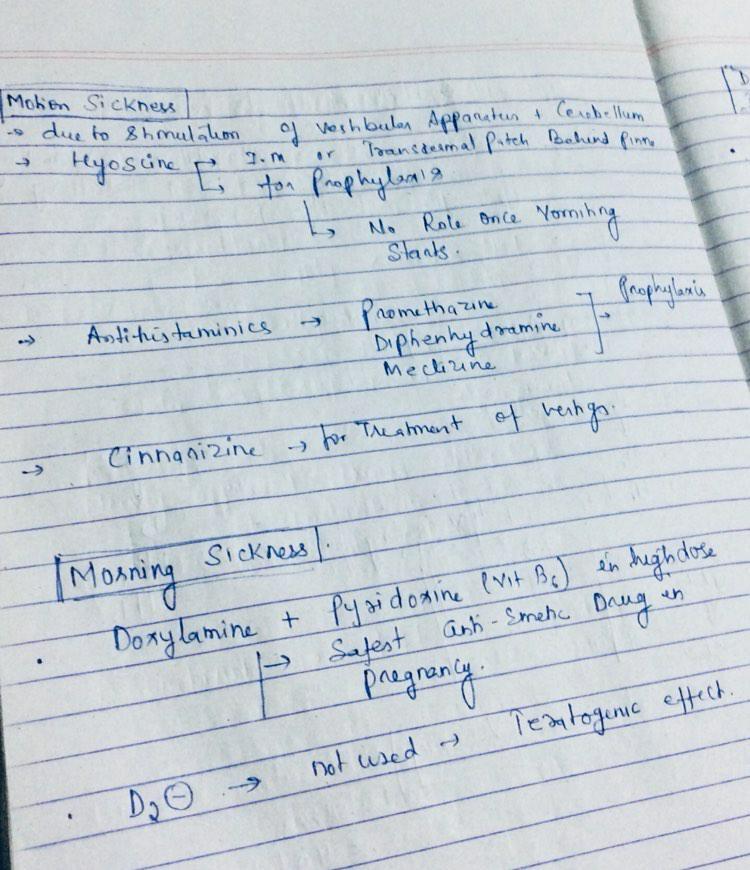 Motion Sickness
→ due to Stimulation of Vestibular Apparatus + Cerebellum
→ Hyoscine → I.M or Transdermal Patch Behind Pinna
↳ for Prophylaxis
↳ No Role once Vomiting
Starts.
→ Antihistaminics → Promethazine
Diphenhydramine
Meclizine
→ Prophylaxis
→ Cinnarizine → for Treatment of vertigo.
Morning Sickness.
• Doxylamine + Pyridoxine (Vit B6) in high dose
→ Safest anti-Emetic Drug in
pregnancy.
• D2 ⊖ → not used → Teratogenic effect.